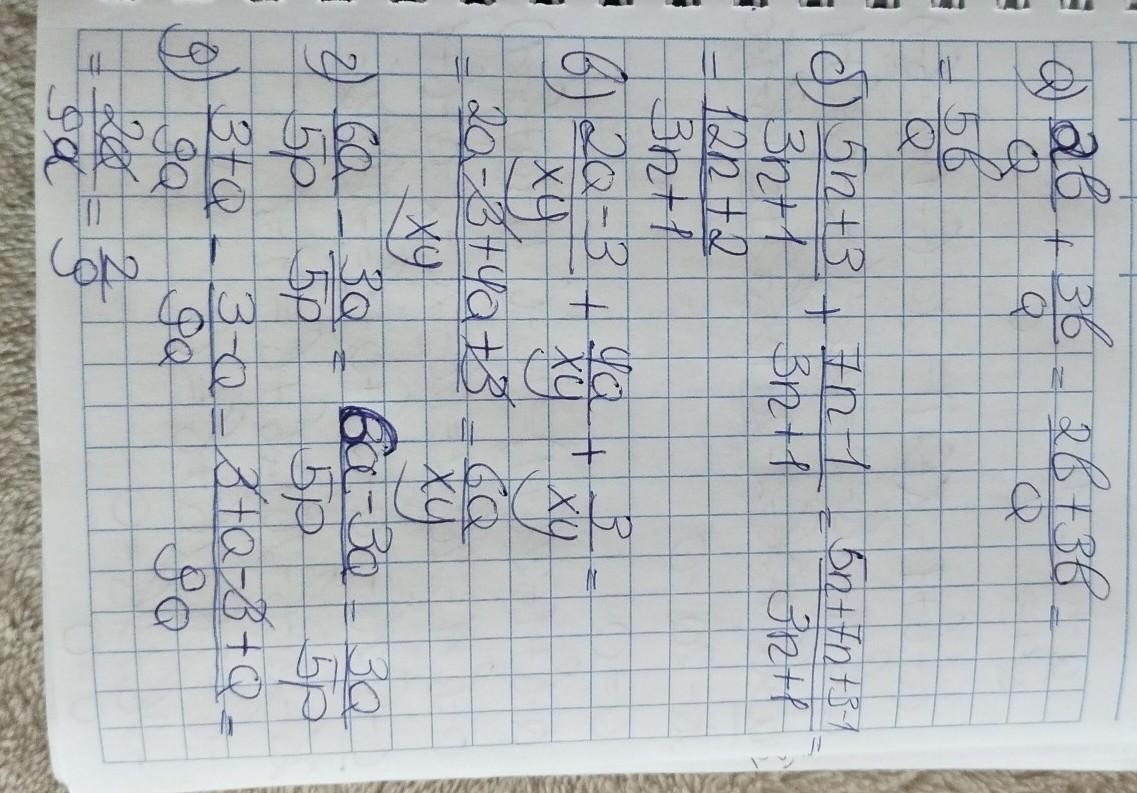 а) 2в/а + 3в/а = 2в+3в/а =
= 5в/а
б) 5n+3/3n+1 + 7n-1/3n+1 = 5n+7n+3-1/3n+1 =
= 12n+2/3n+1
в) 2a-3/xy + 4a/xy + 3/xy =
= 2a-3+4a+3/xy = 6a/xy
г) 6a/5p - 3a/5p = 6a-3a/5p = 3a/5p
д) 3+a/9a - 3-a/9a = 3+a-3+a/9a =
= 2a/9a = 2/9